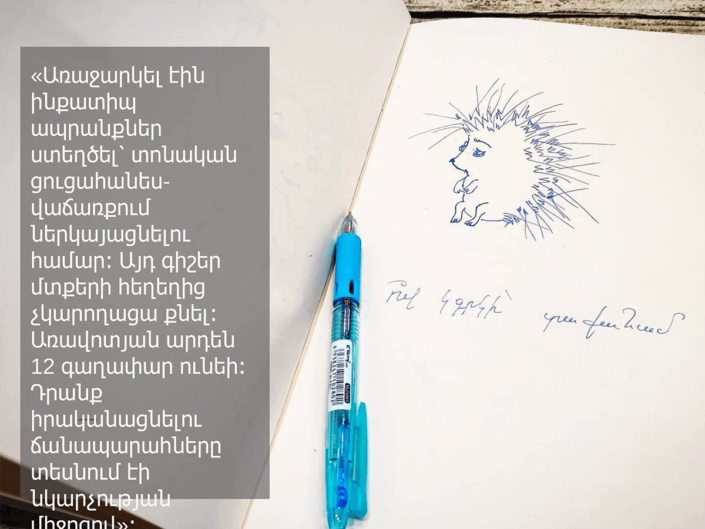 «Առաջարկել էին
ինքատիպ
ապրանքներ
ստեղծել՝ տոնական
ցուցահանես-
վաճառքում
ներկայացնելու
համար: Այդ գիշեր
մտքերի հեղեղից
չկարողացա քնել:
Առավոտյան արդեն
12 գաղափար ունեի:
Դրանք
իրականացնելու
ճանապարահները
տեսնում էի
նկարչության
միջոցով»:
Ո՞վ կգրկի